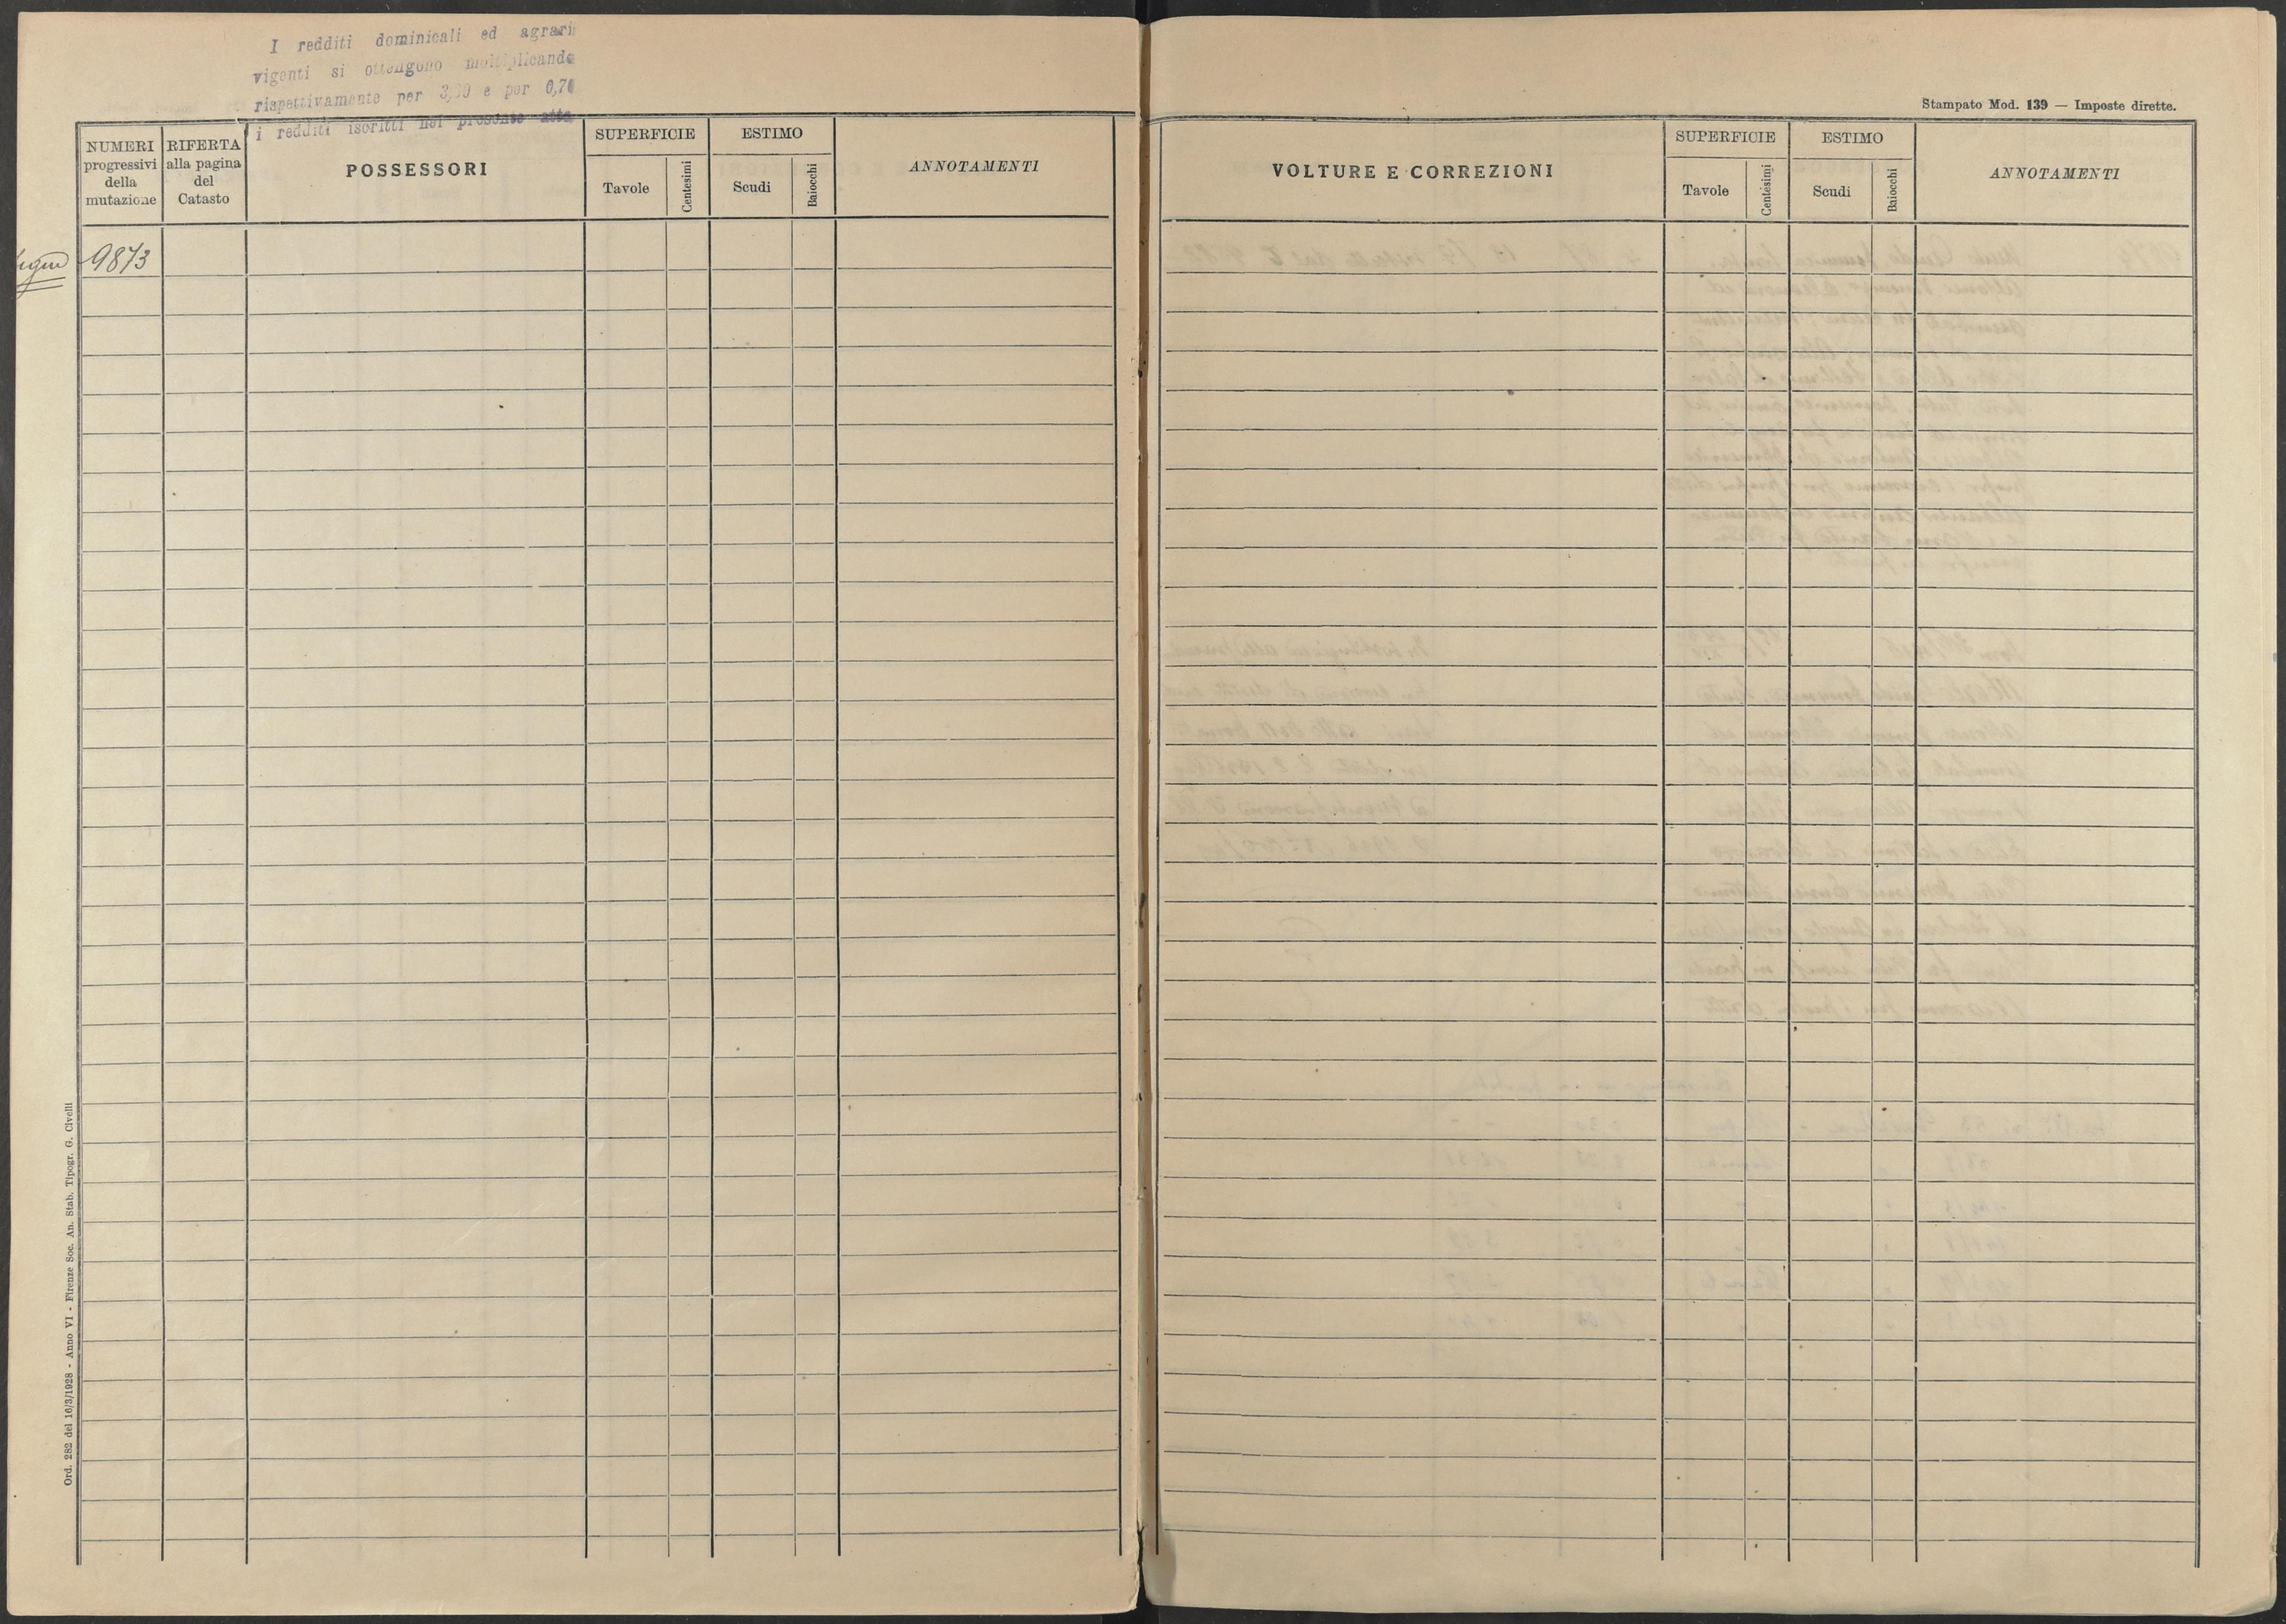 I redditi dominicali ed agrari
vigenti si ottengono moltiplicando
rispettivamente per e per 0,70
i redditi iscritti nel presente atto
NUMERI
progressivi
della
mutazione
RIFERTA
alla pagina
del
Catasto
POSSESSORI
SUPERFICIE
Tavole
Centesimi
ESTIMO
Scudi
Baiocchi
ANNOTAMENTI
9873
Ord. 282 del 16/3/1928 - Anno VI - Firenze Soc. An. Stab. Tipogr. G. Civelli
Stampato Mod. 139 — Imposte dirette.
VOLTURE E CORREZIONI
SUPERFICIE
Tavole
Centesimi
ESTIMO
Scudi
Baiocchi
ANNOTAMENTI